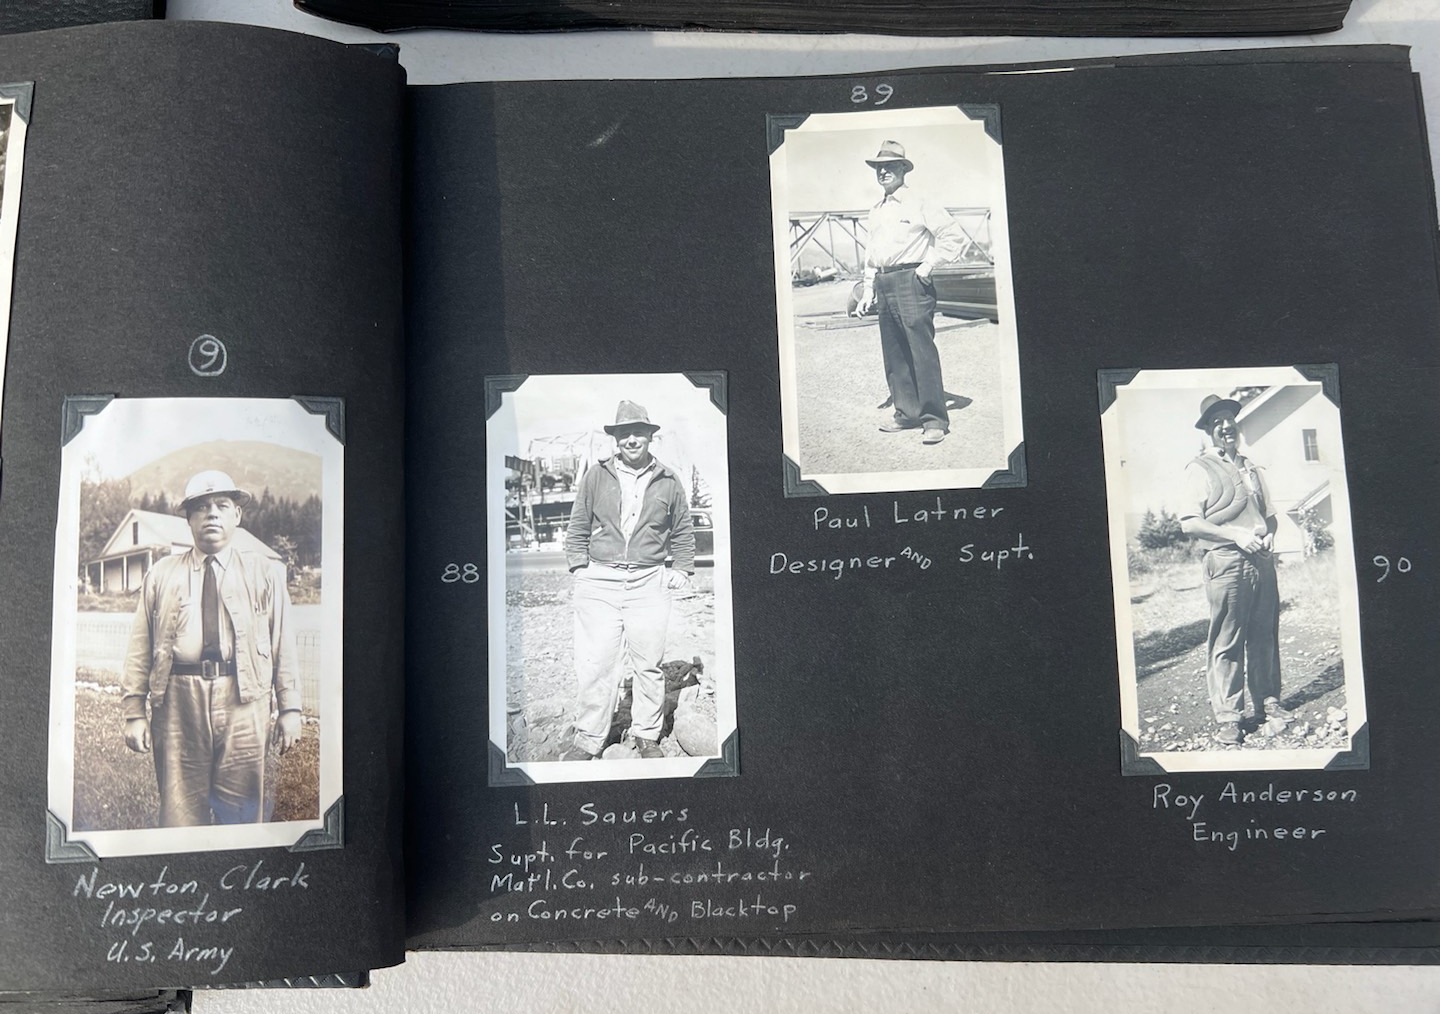 9
Newton Clark
Inspector
U.S. Army
88
L.L. Sauers
Supt. for Pacific Bldg.
Mat'l. Co. sub-contractor
on Concrete AND Blacktop
89
Paul Latner
Designer AND Supt.
90
Roy Anderson
Engineer